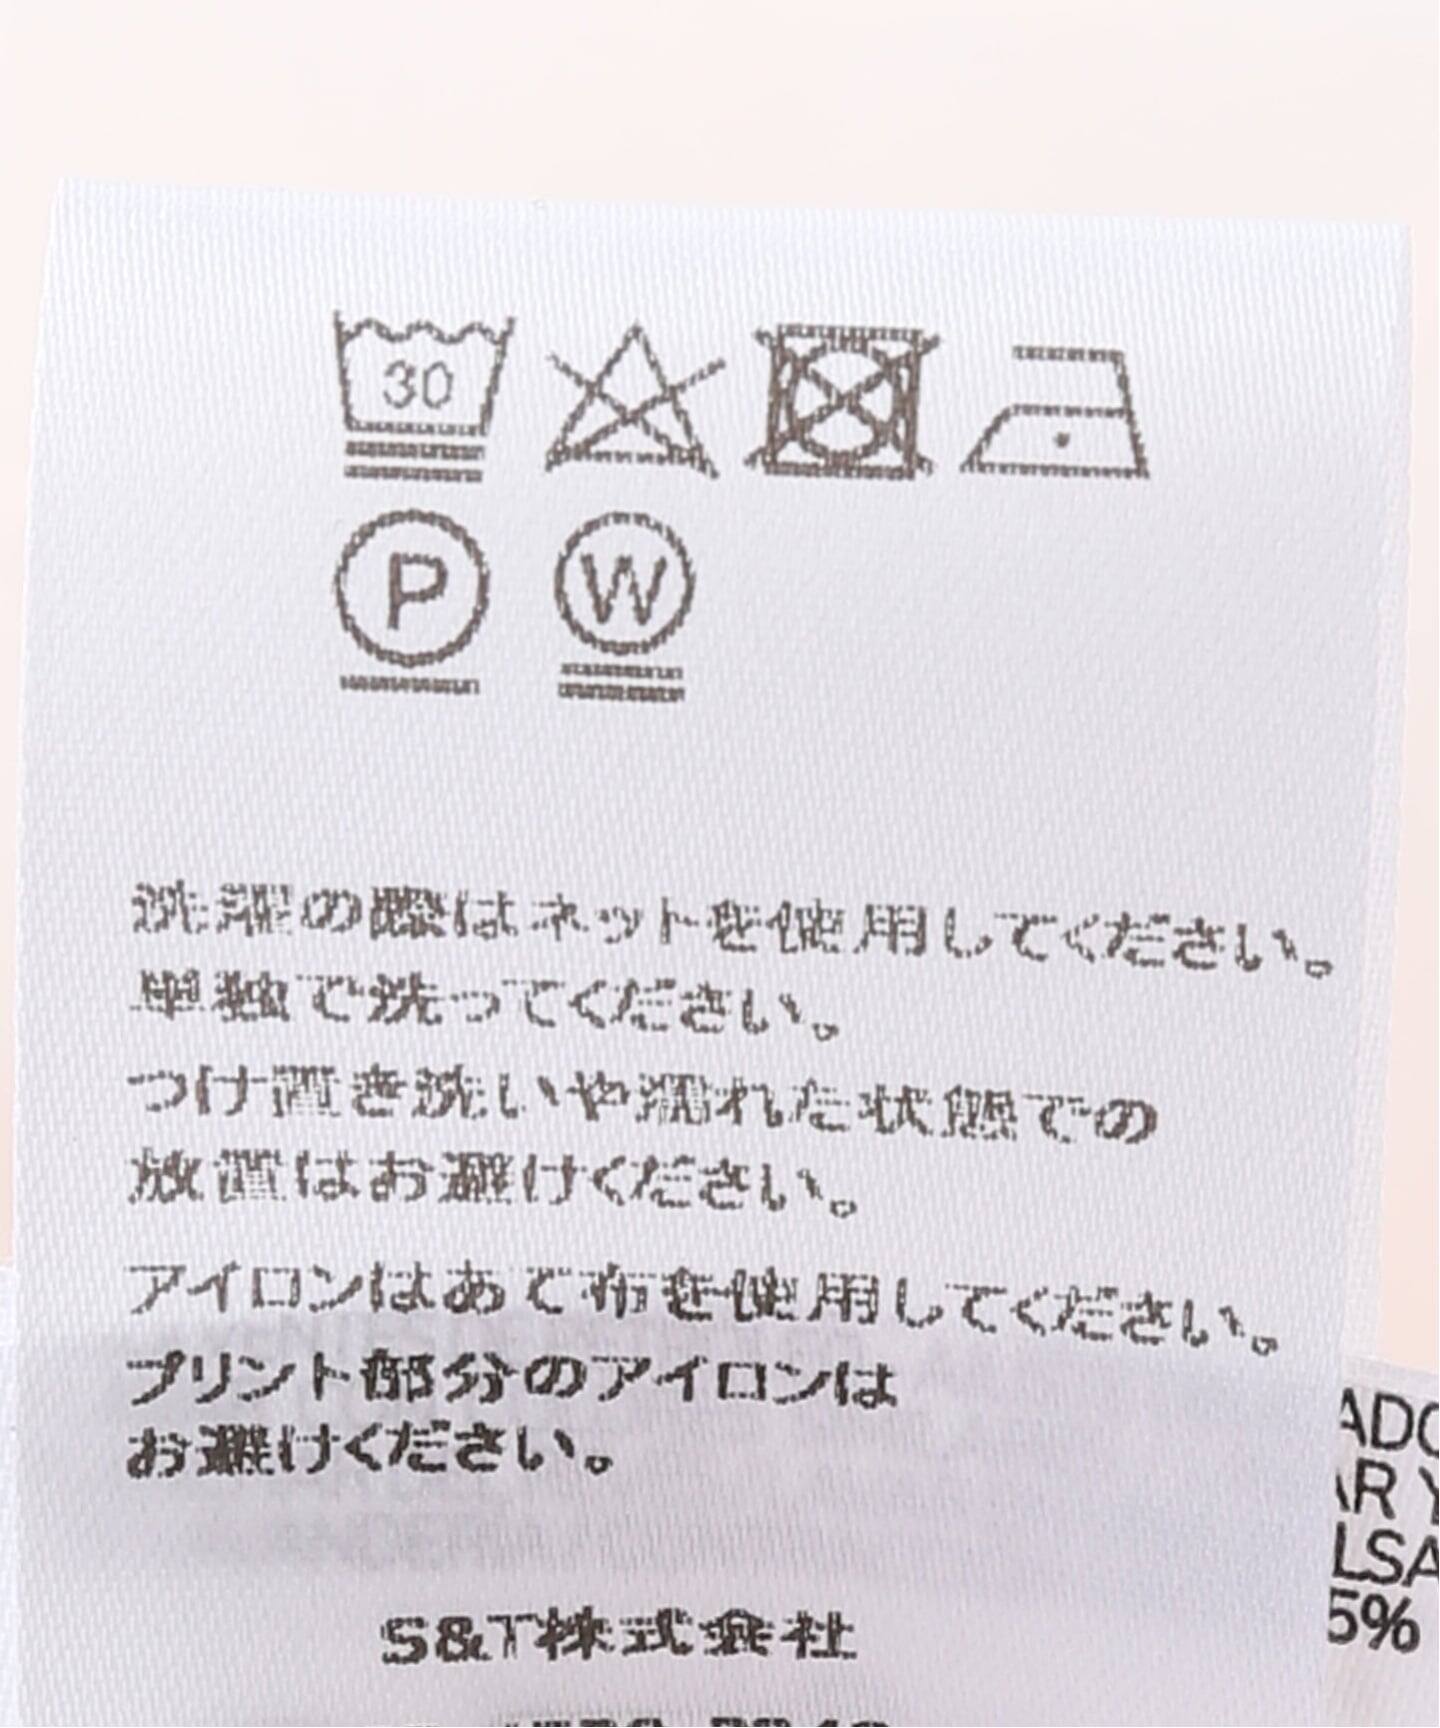 30
P
W
洗濯の際はネットを使用してください。
単独で洗ってください。
つけ置き洗いや濡れた状態での
放置はお避けください。
アイロンはあて布を使用してください。
プリント部分のアイロンは
お避けください。
S&T株式会社
ADO
AR Y
LSA
5%